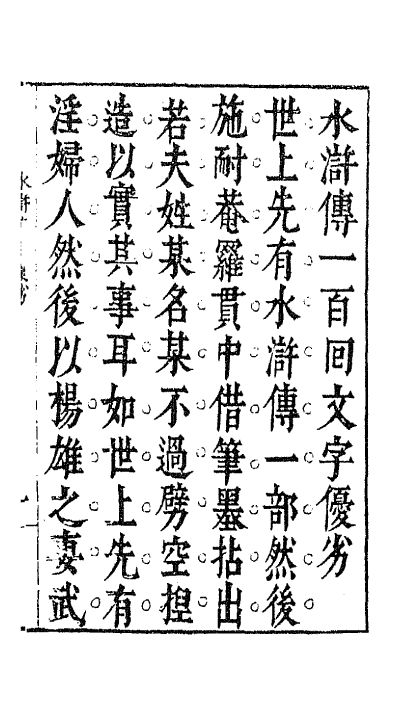 水滸傳一百回文字優劣
世上先有水滸傳一部然後
施耐菴羅貫中借筆墨拈出
若夫姓某名某不過劈空捏
造以實其事耳如世上先有
淫婦人然後以楊雄之妻武